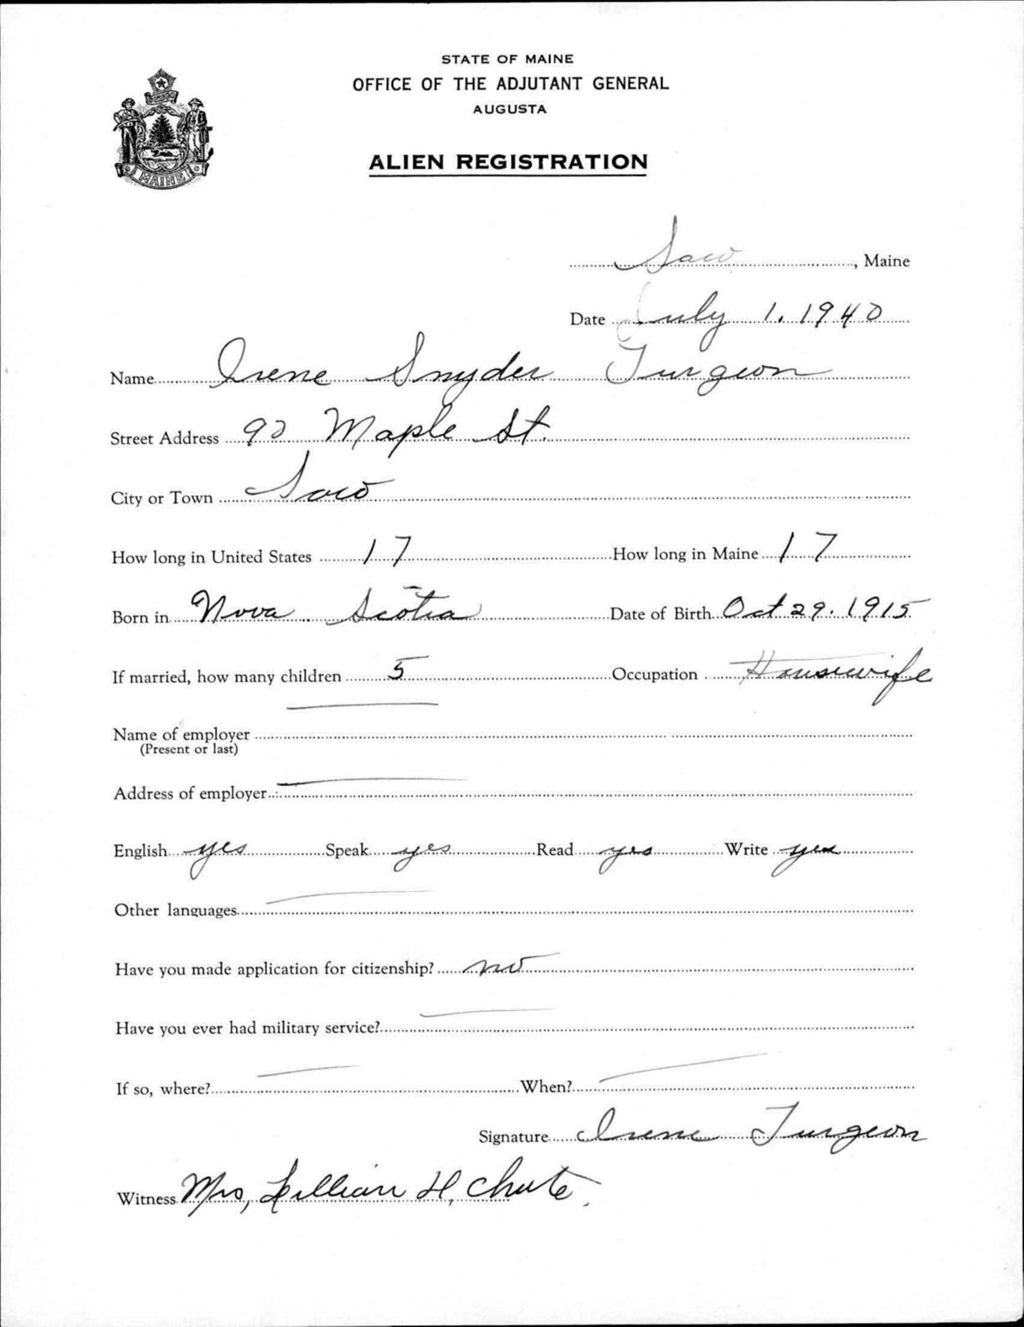 STATE OF MAINE
OFFICE OF THE ADJUTANT GENERAL
AUGUSTA
ALIEN REGISTRATION
MAINE
Saco, Maine
Date July 1, 1940
Name Irene Snyder Turgeon
Street Address Maple St.
City or Town Saco
How long in United States 17 How long in Maine 17
Born in Nova Scotia Date of Birth Oct 29. 1915
If married, how many children 5 Occupation Housewife
Name of employer
(Present or last)
Address of employer
English yes Speak yes Read yes Write yes
Other languages
Have you made application for citizenship? no
Have you ever had military service?
If so, where? When?
Signature Irene Turgeon
Witness Mrs, Lillian H. Chute.